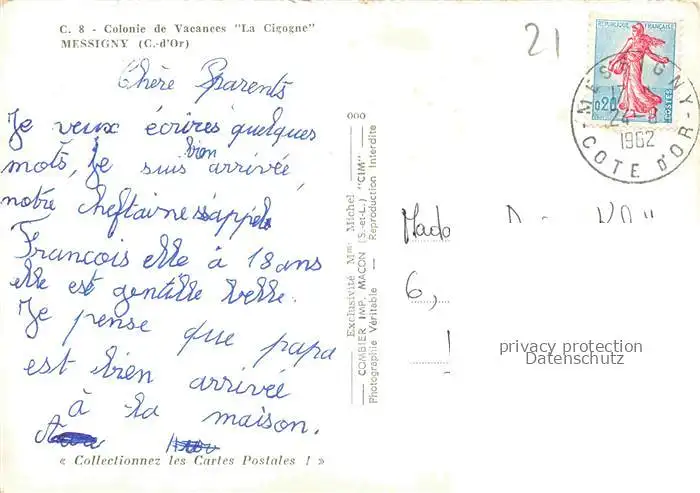 C. 8 - Colonie de Vacances "La Cigogne"
MESSIGNY (C.-d'Or)
Chère Parents
Je veux écrires quelques
mots, Je suis bien arrivée,
notre cheftaine s'appele
Francois elle à 18 ans
elle est gentille belle.
Je pense que papa
est bien arrivée
à la maison.
« Collectionnez les Cartes Postales ! »
000
Exclusivité Mme Michel
COMBIER IMP. MACON (S.-et-L.) "CIM"
Photographie Véritable — Reproduction Interdite
21
REPUBLIQUE FRANÇAISE
0,20
POSTES
MESSIGNY
24-8
1962
COTE D'OR
Mada
6,
privacy protection
Datenschutz